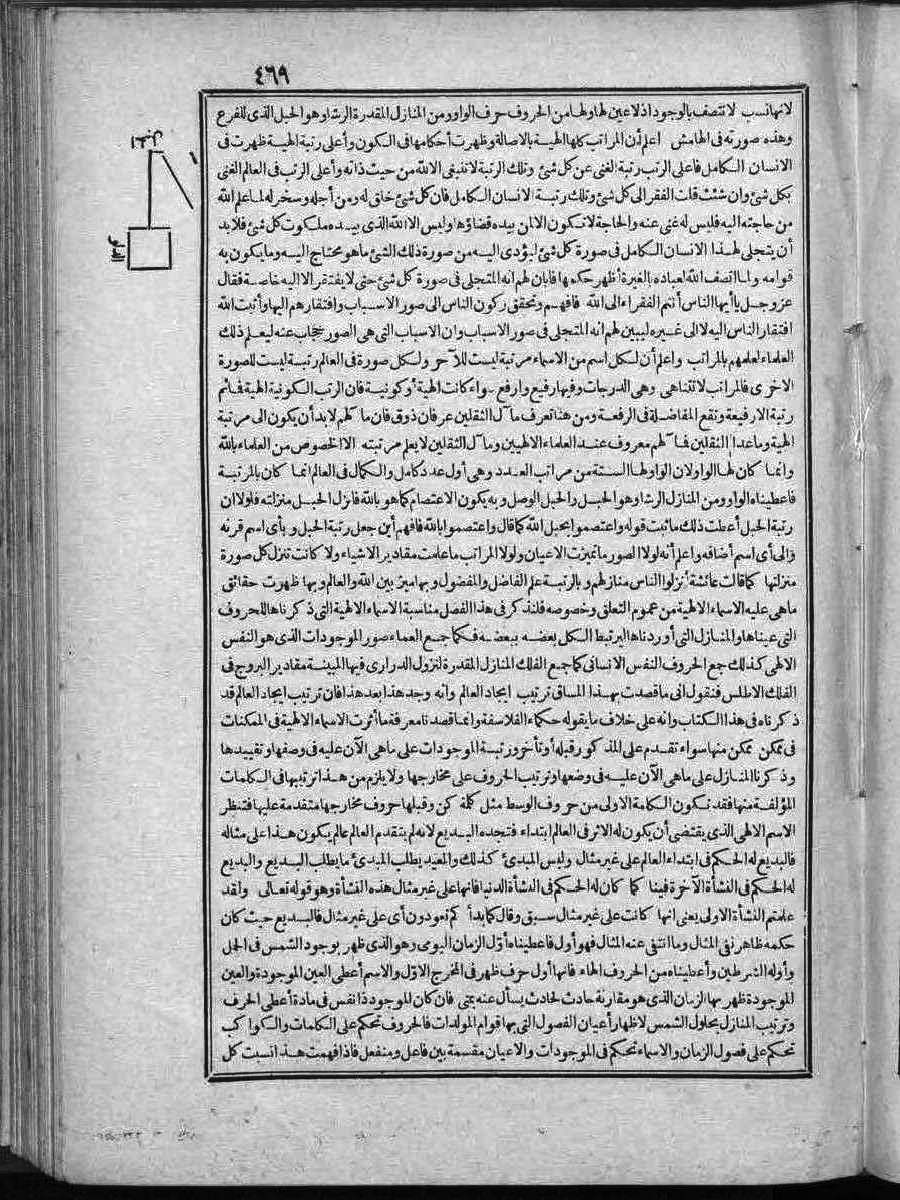 ٤٦٩
لانها نسب لا تتصف بالوجود اذ لا عين لها ولها من الحروف حرف الواو ومن المنازل المقدرة الرشا وهو الحبل الذى للفرع
وهذه صورته فى الهامش اعلم أن المراتب كلها الهية بالاصالة وظهرت أحكامها فى الكون وأعلى رتبة الهية ظهرت فى
الانسان الكامل فاعلى الرتب رتبة الغنى عن كل شئ وتلك الرتبة لا تنبغى الا لله من حيث ذاته وأعلى الرتب فى العالم الغنى
بكل شئ وان شئت قلت الفقر الى كل شئ وتلك رتبة الانسان الكامل فان كل شئ خلق له ومن أجله وسخر له لما علم الله
من حاجته اليه فليس له غنى عنه والحاجة لا تكون الا لمن بيده قضاؤها وليس الا الله الذى بيده ملكوت كل شئ فلا بد
أن يتجلى لهذا الانسان الكامل فى صورة كل شئ ليؤدى اليه من صورة ذلك الشئ ما هو محتاج اليه وما يكون به
قوامه ولما اتصف الله لعباده بالغيرة أظهر حكمها فابان لهم انه المتجلى فى صورة كل شئ حتى لا يفتقر الا اليه خاصة فقال
عز وجل يا أيها الناس أنتم الفقراء الى الله فافهم وتحقق ركون الناس الى صور الاسباب وافتقارهم اليها وأثبت الله
افتقار الناس اليه لا الى غيره ليبين لهم انه المتجلى فى صور الاسباب وان الاسباب التى هى الصور حجاب عنه ليعلم ذلك
العلماء لعلمهم بالمراتب واعلم أن لكل اسم من الاسماء مرتبة ليست للآخر ولكل صورة فى العالم رتبة ليست للصورة
الاخرى فالمراتب لا تتناهى وهى الدرجات وفيها رفيع وارفع سواء كانت الهية أو كونية فان الرتب الكونية الهية فما ثم
رتبة الا رفيعة وتقع المفاضلة فى الرفعة ومن هنا تعرف مآل الثقلين عرفان ذوق فان مآلهم لا بد أن يكون الى مرتبة
الهية وما عدا الثقلين فمآلهم معروف عند العلماء الالهيين ومآل الثقلين لا يعلم مرتبته الا الخصوص من العلماء بالله
وانما كان لها الواو لان الواو لها الستة من مراتب العدد وهى أول عدد كامل والكمال فى العالم انما كان بالمرتبة
فاعطيناه الواو ومن المنازل الرشا وهو الحبل والحبل الوصل وبه يكون الاعتصام كما هو بالله فانزل الحبل منزلته فلولا ان
رتبة الحبل أعطت ذلك ما ثبت قوله واعتصموا بحبل الله كما قال واعتصموا بالله فافهم أين جعل رتبة الحبل وبأى اسم قرنه
والى أى اسم أضافه واعلم أنه لولا الصور ما تميزت الاعيان ولولا المراتب ما علمت مقادير الاشياء ولا كانت تنزل كل صورة
منزلتها كما قالت عائشة أنزلوا الناس منازلهم وبالرتبة علم الفاضل والمفضول وبها ميز بين الله والعالم وبها ظهرت حقائق
ما هى عليه الاسماء الالهية من عموم التعلق وخصوصه فلنذكر فى هذا الفصل مناسبة الاسماء الالهية التى ذكرناها للحروف
التى عيناها والمنازل التى أوردناها ليرتبط الكل بعضه ببعضه فكما جمع العماء صور الموجودات الذى هو النفس
الالهى كذلك جمع الحروف النفس الانسانى كما جمع الفلك المنازل المقدرة لنزول الدرارى فيها المبينة مقادير البروج فى
الفلك الاطلس فنقول انى ما قصدت بهذا المساق ترتيب ايجاد العالم وانه وجد هذا بعد هذا فان ترتيب ايجاد العالم قد
ذكرناه فى هذا الكتاب وانه على خلاف ما يقوله حكماء الفلاسفة وانما قصدنا معرفة ما أثرت الاسماء الالهية فى الممكنات
فى ممكن ممكن منها سواء تقدم على المذكور قبله أو تأخر ورتبة الموجودات على ما هى الآن عليه فى وصفها وتقييدها
وذكرنا المنازل على ماهى الآن عليه فى وضعها وترتيب الحروف على مخارجها ولا يلزم من هذا ترتيبها فى الكلمات
المؤلفة منها فقد تكون الكلمة الاولى من حروف الوسط مثل كلمة كن وقبلها حروف مخارجها متقدمة عليها فتنظر
الاسم الالهى الذى يقتضى أن يكون له الاثر فى العالم ابتداء فتجده البديع لانه لم يتقدم العالم عالم يكون هذا على مثاله
فالبديع له الحكم فى ابتداء العالم على غير مثال وليس المبدئ كذلك والمعيد يطلب المبدئ ما يطلب البديع والبديع
له الحكم فى النشأة الآخرة فينا كما كان له الحكم فى النشأة الدنيا فانها على غير مثال هذه النشأة وهو قوله تعالى ولقد
علمتم النشأة الاولى يعنى انها كانت على غير مثال سبق وقال كما بدأ كم تعودون أى على غير مثال فالبديع حيث كان
حكمه ظاهر نفى المثال وما انتفى عنه المثال فهو أول فاعطيناه أول الزمان اليومى وهو الذى ظهر بوجود الشمس فى الحمل
وأوله الشرطين وأعطيناه من الحروف الهاء فانها أول حرف ظهر فى المخرج الاول والاسم أعطى العين الموجودة والعين
الموجودة ظهر بها الزمان الذى هو مقارنة حادث لحادث يسأل عنه بمتى فان كان الموجود ذا نفس فى مادة أعطى الحرف
وترتيب المنازل بحلول الشمس لاظهار أعيان الفصول التى بها قوام المولدات فالحروف تحكم على الكلمات والكواكب
تحكم على فصول الزمان والاسماء تحكم فى الموجودات والاعيان مقسمة بين فاعل ومنفعل فاذا فهمت هذا نسبت كل